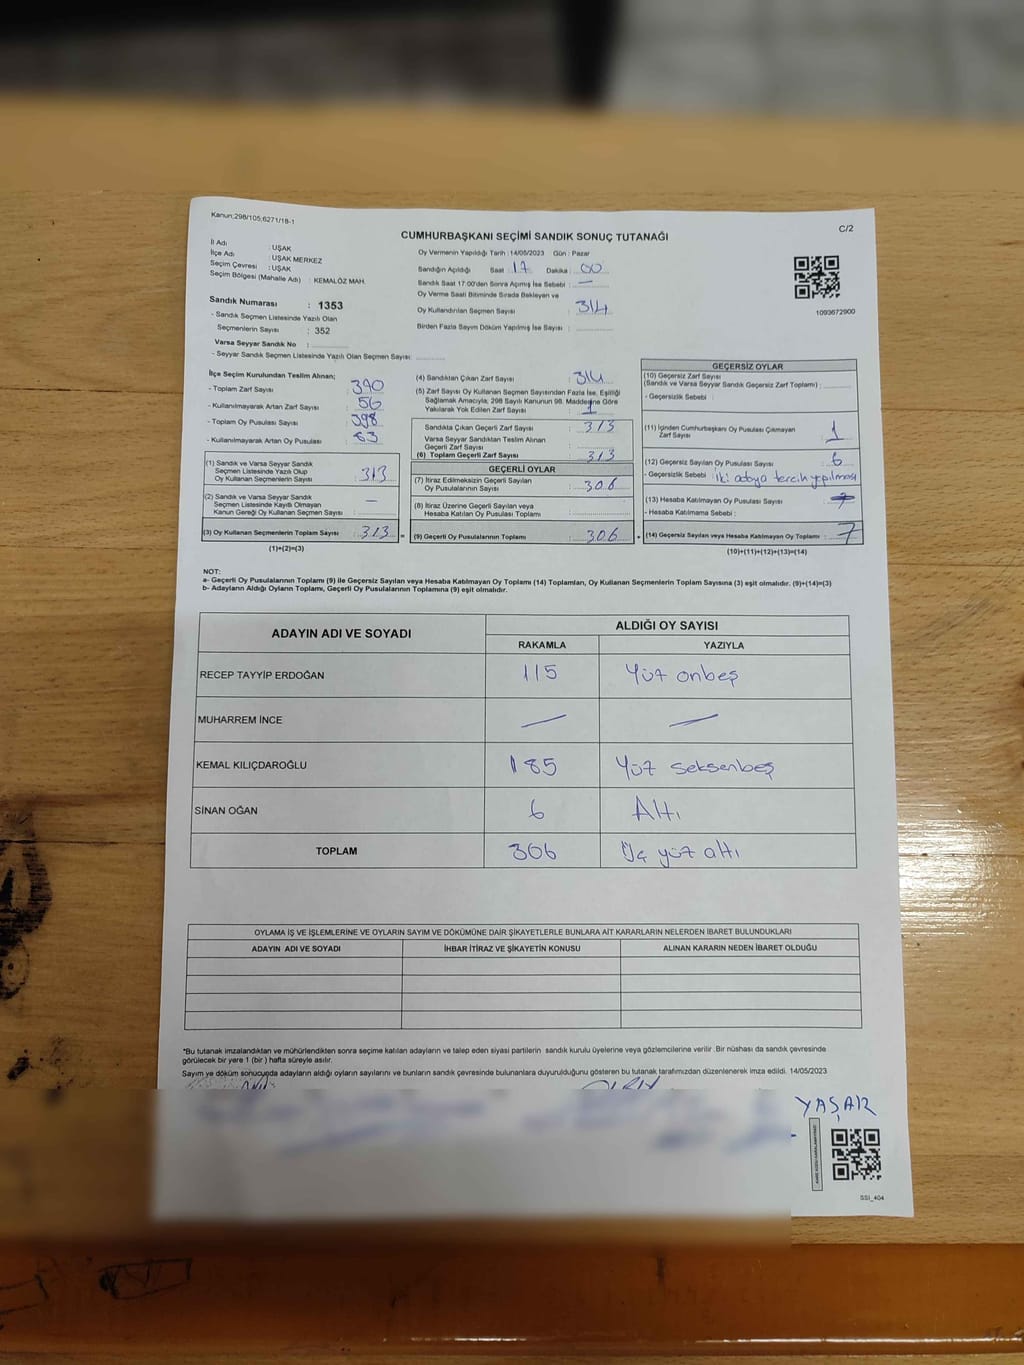 Kanun;298/105;6271/18-1
C/2
CUMHURBAŞKANI SEÇİMİ SANDIK SONUÇ TUTANAĞI
İl Adı : UŞAK
İlçe Adı : UŞAK MERKEZ
Seçim Çevresi : UŞAK
Seçim Bölgesi (Mahalle Adı) : KEMALÖZ MAH.
Sandık Numarası : 1353
- Sandık Seçmen Listesinde Yazılı Olan
Seçmenlerin Sayısı : 352
Varsa Seyyar Sandık No :
- Seyyar Sandık Seçmen Listesinde Yazılı Olan Seçmen Sayısı:
Oy Vermenin Yapıldığı Tarih :14/05/2023 Gün : Pazar
Sandığın Açıldığı Saat : 17 Dakika : 00
Sandık Saat 17:00'den Sonra Açılmış İse Sebebi : —
Oy Verme Saati Bitiminde Sırada Bekleyen ve
Oy Kullandırılan Seçmen Sayısı : 314
Birden Fazla Sayım Döküm Yapılmış İse Sayısı :
1093672900
İlçe Seçim Kurulundan Teslim Alınan;
- Toplam Zarf Sayısı : 390
- Kullanılmayarak Artan Zarf Sayısı : 56
- Toplam Oy Pusulası : 398
- Kullanılmayarak Artan Oy Pusulası : 63
(1) Sandık ve Varsa Seyyar Sandık
Seçmen Listesinde Yazılı Olup
Oy Kullanan Seçmenlerin Sayısı : 313
(2) Sandık ve Varsa Seyyar Sandık
Seçmen Listesinde Kayıtlı Olmayan
Kanun Gereği Oy Kullanan Seçmen Sayısı : —
(3) Oy Kullanan Seçmenlerin Toplam Sayısı : 313 =
(1)+(2)=(3)
(4) Sandıktan Çıkan Zarf Sayısı : 314
(5) Zarf Sayısı Oy Kullanan Seçmen Sayısından Fazla İse, Eşitliği
Sağlamak Amacıyla; 298 Sayılı Kanunun 98. Maddesine Göre
Yakılarak Yok Edilen Zarf Sayısı : 1
Sandıkta Çıkan Geçerli Zarf Sayısı : 313
Varsa Seyyar Sandıktan Teslim Alınan
Geçerli Zarf Sayısı :
(6) Toplam Geçerli Zarf Sayısı : 313
GEÇERLİ OYLAR
(7) İtiraz Edilmeksizin Geçerli Sayılan
Oy Pusulalarının Sayısı : 306
(8) İtiraz Üzerine Geçerli Sayılan veya
Hesaba Katılan Oy Pusulası Toplamı :
(9) Geçerli Oy Pusulalarının Toplamı : 306 +
GEÇERSİZ OYLAR
(10) Geçersiz Zarf Sayısı
(Sandık ve Varsa Seyyar Sandık Geçersiz Zarf Toplamı) :
- Geçersizlik Sebebi :
(11) İçinden Cumhurbaşkanı Oy Pusulası Çıkmayan
Zarf Sayısı : 1
(12) Geçersiz Sayılan Oy Pusulası Sayısı : 6
- Geçersizlik Sebebi : İki adaya tercih yapılması
(13) Hesaba Katılmayan Oy Pusulası Sayısı
- Hesaba Katılmama Sebebi :
(14) Geçersiz Sayılan veya Hesaba Katılmayan Oy Toplamı : 7
(10)+(11)+(12)+(13)=(14)
NOT:
a- Geçerli Oy Pusulalarının Toplamı (9) ile Geçersiz Sayılan veya Hesaba Katılmayan Oy Toplamı (14) Toplamları, Oy Kullanan Seçmenlerin Toplam Sayısına (3) eşit olmalıdır. (9)+(14)=(3)
b- Adayların Aldığı Oyların Toplamı, Geçerli Oy Pusulalarının Toplamına (9) eşit olmalıdır.
ADAYIN ADI VE SOYADI ALDIĞI OY SAYISI
RAKAMLA YAZIYLA
RECEP TAYYİP ERDOĞAN 115 Yüz onbeş
MUHARREM İNCE — —
KEMAL KILIÇDAROĞLU 185 Yüz seksenbeş
SİNAN OĞAN 6 Altı
TOPLAM 306 Üç yüz altı
OYLAMA İŞ VE İŞLEMLERİNE VE OYLARIN SAYIM VE DÖKÜMÜNE DAİR ŞİKAYETLERLE BUNLARA AİT KARARLARIN NELERDEN İBARET BULUNDUKLARI
ADAYIN ADI VE SOYADI İHBAR İTİRAZ VE ŞİKAYETİN KONUSU ALINAN KARARIN NEDEN İBARET OLDUĞU
*Bu tutanak imzalandıktan ve mühürlendikten sonra seçime katılan adayların ve talep eden siyasi partilerin sandık kurulu üyelerine veya gözlemcilerine verilir .Bir nüshası da sandık çevresinde
görülecek bir yere 1 (bir ) hafta süreyle asılır.
Sayım ve döküm sonucunda adayların aldığı oyların sayılarını ve bunların sandık çevresinde bulunanlara duyurulduğunu gösteren bu tutanak tarafımızdan düzenlenerek imza edildi. 14/05/2023
YAŞAR
SSI_404